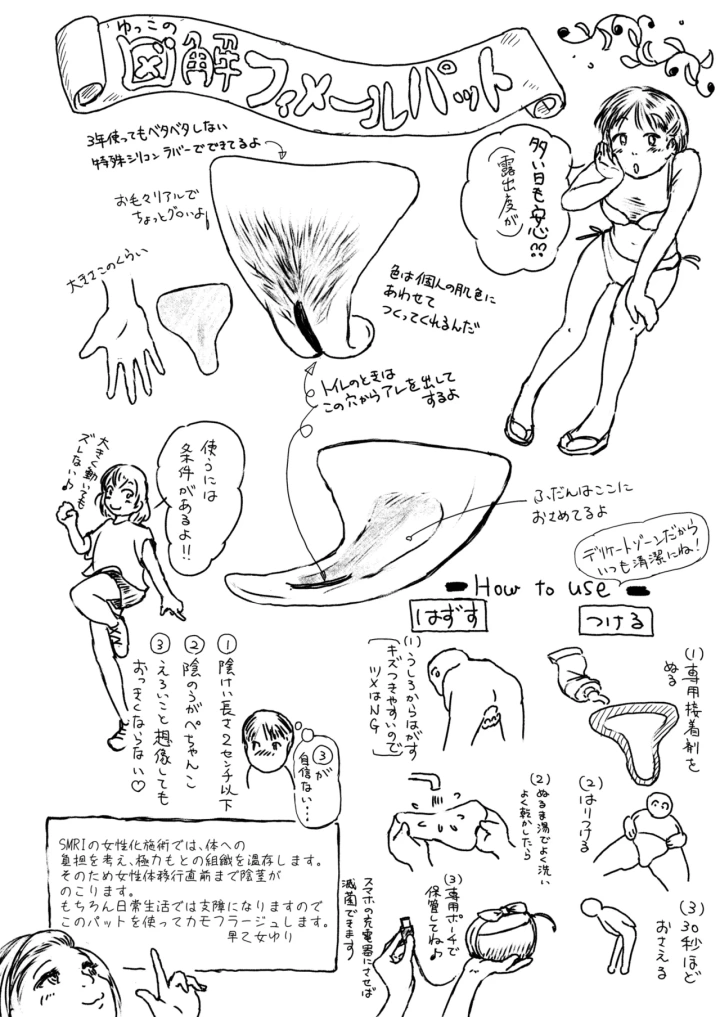 ゆっこの
図解フィメールパット
3年使ってもベタベタしない
特殊シリコンラバーでできてるよ
おもくリアルで
ちょっとグロいよ
大きさこのくらい
多い日も安心!?
（露出度が）
色は個人の肌色に
あわせて
つくってくれるんだ
トイレのときは
この穴からアレを出して
するよ
大きく動いても
ズレない♪
使うには
条件があるよ!!
ふだんはここに
おさめてるよ
デリケートゾーンだから
いつも清潔にね!
How to use
はずす
つける
(1)うしろからはがす
キズつきやすいので
ツメはNG
(2)ぬるま湯でよく洗い
よく乾かしたら
(3)専用ポーチで
保管してね♪
スマホの充電器にさせば
滅菌できます
(1)専用接着剤を
ぬる
(2)はりつける
(3)30秒ほど
おさえる
①陰けい長さ2センチ以下
②陰のうがぺちゃんこ
③えろいこと想像しても
おっきくならない♡
③が
自信ない…
SMRIの女性化施術では、体への
負担を考え、極力もとの組織を温存します。
そのため女性体移行直前まで陰茎が
のこります。
もちろん日常生活では支障になりますので
このパットを使ってカモフラージュします。
早乙女ゆり